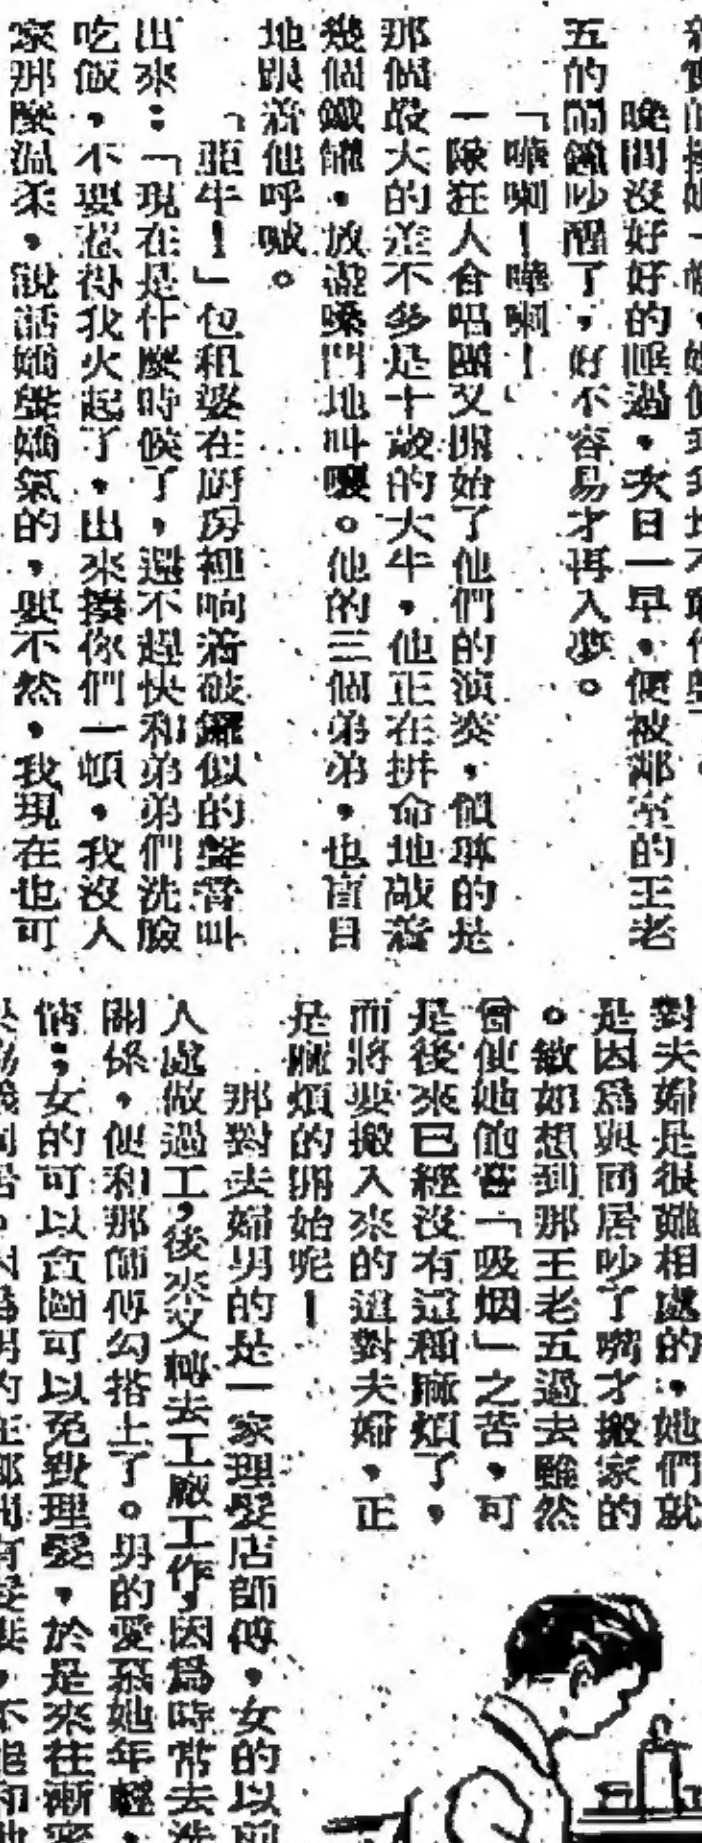 晚間沒好好的睡過，次日一早，便被鄰室的王老
五的鬧鐘吵醒了，好不容易才再入夢。
「嘩喇！嘩喇！」
一隊狂人合唱團又開始了他們的演奏，領導的是
那個最大的差不多是十歲的大牛，他正在拼命地敲着
幾個鐵罐，放盡嗓門地叫嚷。他的三個弟弟，也盲目
地跟着他呼喊。
「亞牛！」包租婆在厨房裡响着破鑼似的聲音叫
出來：「現在是什麼時候了，還不趕快和弟弟們洗臉
吃飯，不要惹得我火起了，出來揍你們一頓，我沒人
家那麼溫柔，說話嬌聲嬌氣的，要不然，我現在也可
對夫婦是很難相處的，她們就
是因為與同居吵了嘴才搬家的
。敏如想到那王老五過去雖然
曾使她飽嘗「吸烟」之苦，可
是後來已經沒有這種麻煩了，
而將要搬入來的這對夫婦，正
是麻煩的開始呢！
那對夫婦男的是一家理髮店師傅，女的以前
人處做過工，後來又轉去工廠工作，因為時常去洗
關係，便和那師傅勾搭上了。男的愛她年輕，
情；女的可以貪圖可以免費理髮，於是來往漸密